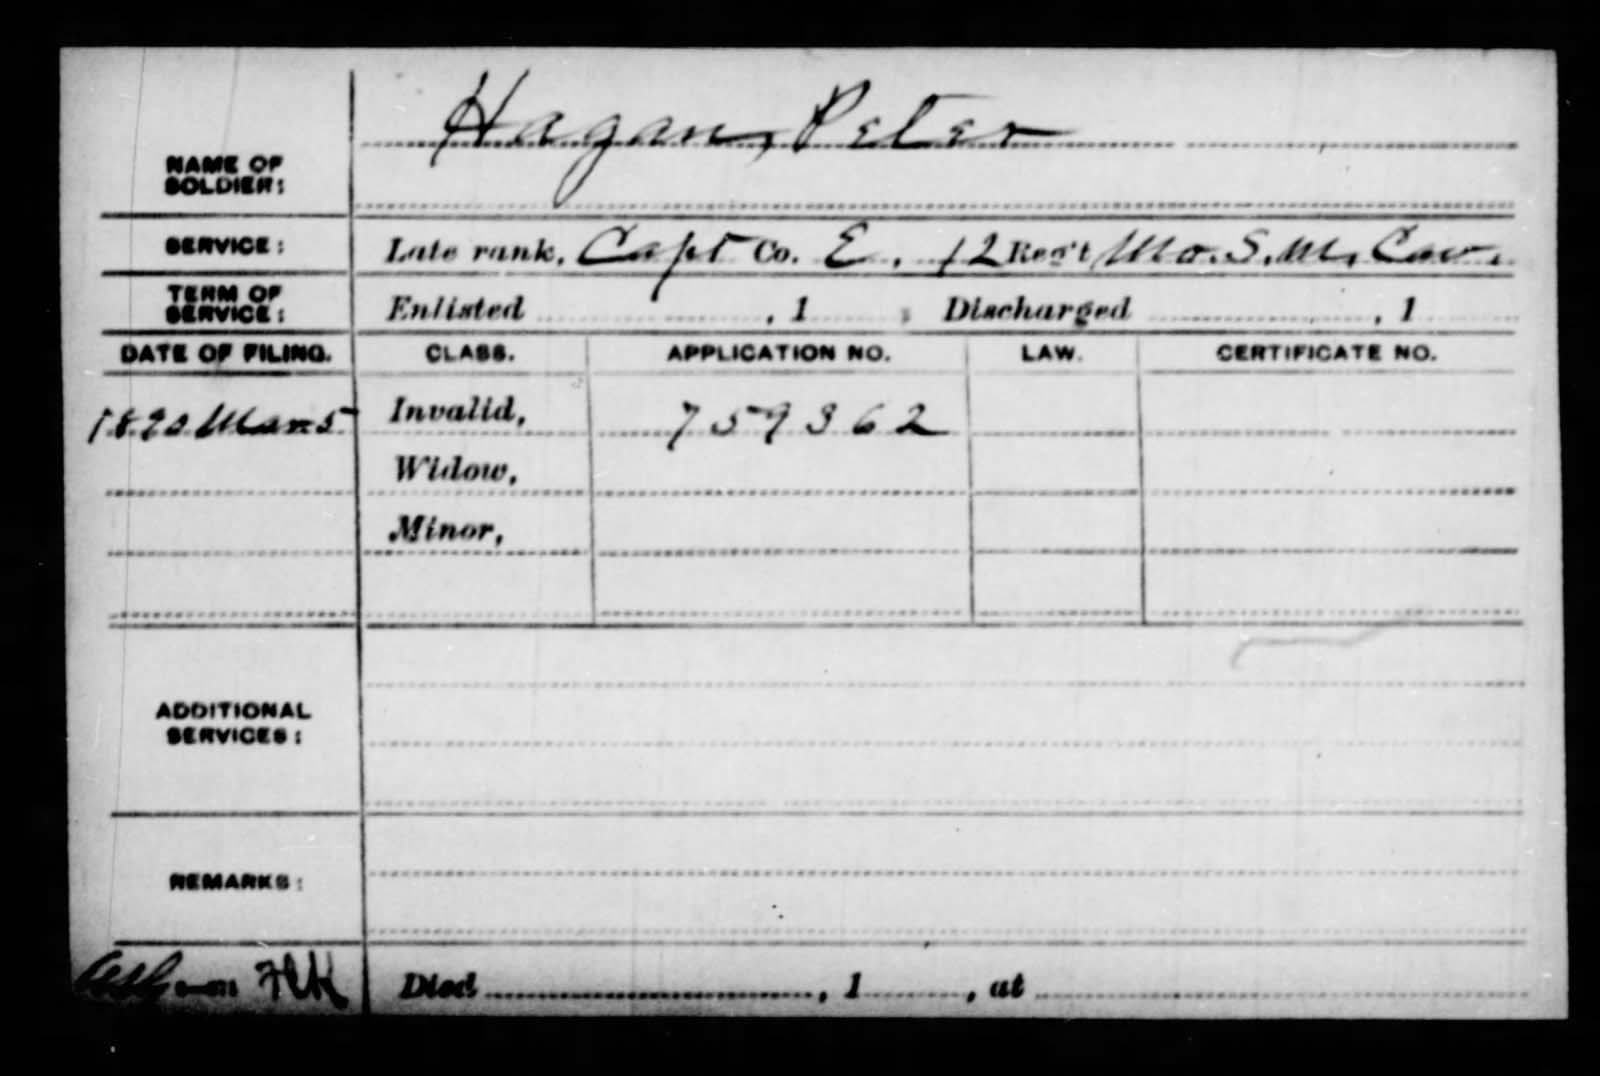 Hagan, Peter
NAME OF
SOLDIER:
SERVICE: Late rank, Capt Co. E, 12 Reg't Mo. S. M. Cav.
TERM OF
SERVICE: Enlisted , 1 ; Discharged , 1
DATE OF FILING. CLASS. APPLICATION NO. LAW. CERTIFICATE NO.
1890 Mar 5 Invalid, 759362
Widow,
Minor,
ADDITIONAL
SERVICES:
REMARKS:
Died , 1 , at